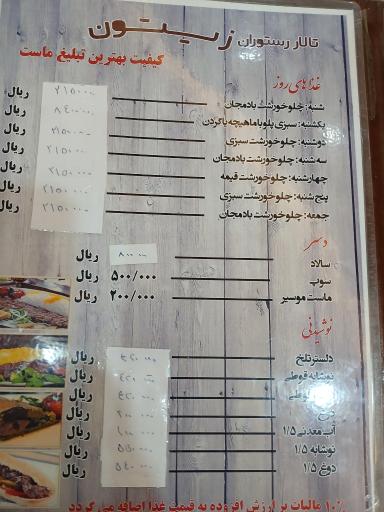 تالار رستوران زیتون
کیفیت بهترین تبلیغ ماست
غذاهای روز
شنبه: چلوخورشت بادمجان ۲۱۵۰۰۰۰ ریال
یکشنبه: سبزی پلو با ماهیچه یا گردن ریال
دوشنبه: چلوخورشت سبزی ۲۱۵۰۰۰۰ ریال
سه شنبه: چلوخورشت بادمجان ۲۱۵۰۰۰۰ ریال
چهارشنبه: چلوخورشت قیمه ۲۱۵۰۰۰۰ ریال
پنج شنبه: چلوخورشت سبزی ۲۱۵۰۰۰۰ ریال
جمعه: چلوخورشت بادمجان ۲۱۵۰۰۰۰ ریال
دسر
سالاد ۸۰۰۰۰۰ ریال
سوپ ۵۰۰/۰۰۰ ریال
ماست موسیر ۲۰۰/۰۰۰ ریال
نوشیدنی
دلستر تلخ ریال
نوشابه قوطی ریال
قوطی ریال
ریال
آب معدنی ۱/۵ ریال
نوشابه ۱/۵ ریال
دوغ ۱/۵ ریال
۱۰٪ مالیات بر ارزش افزوده به قیمت غذا اضافه می گردد